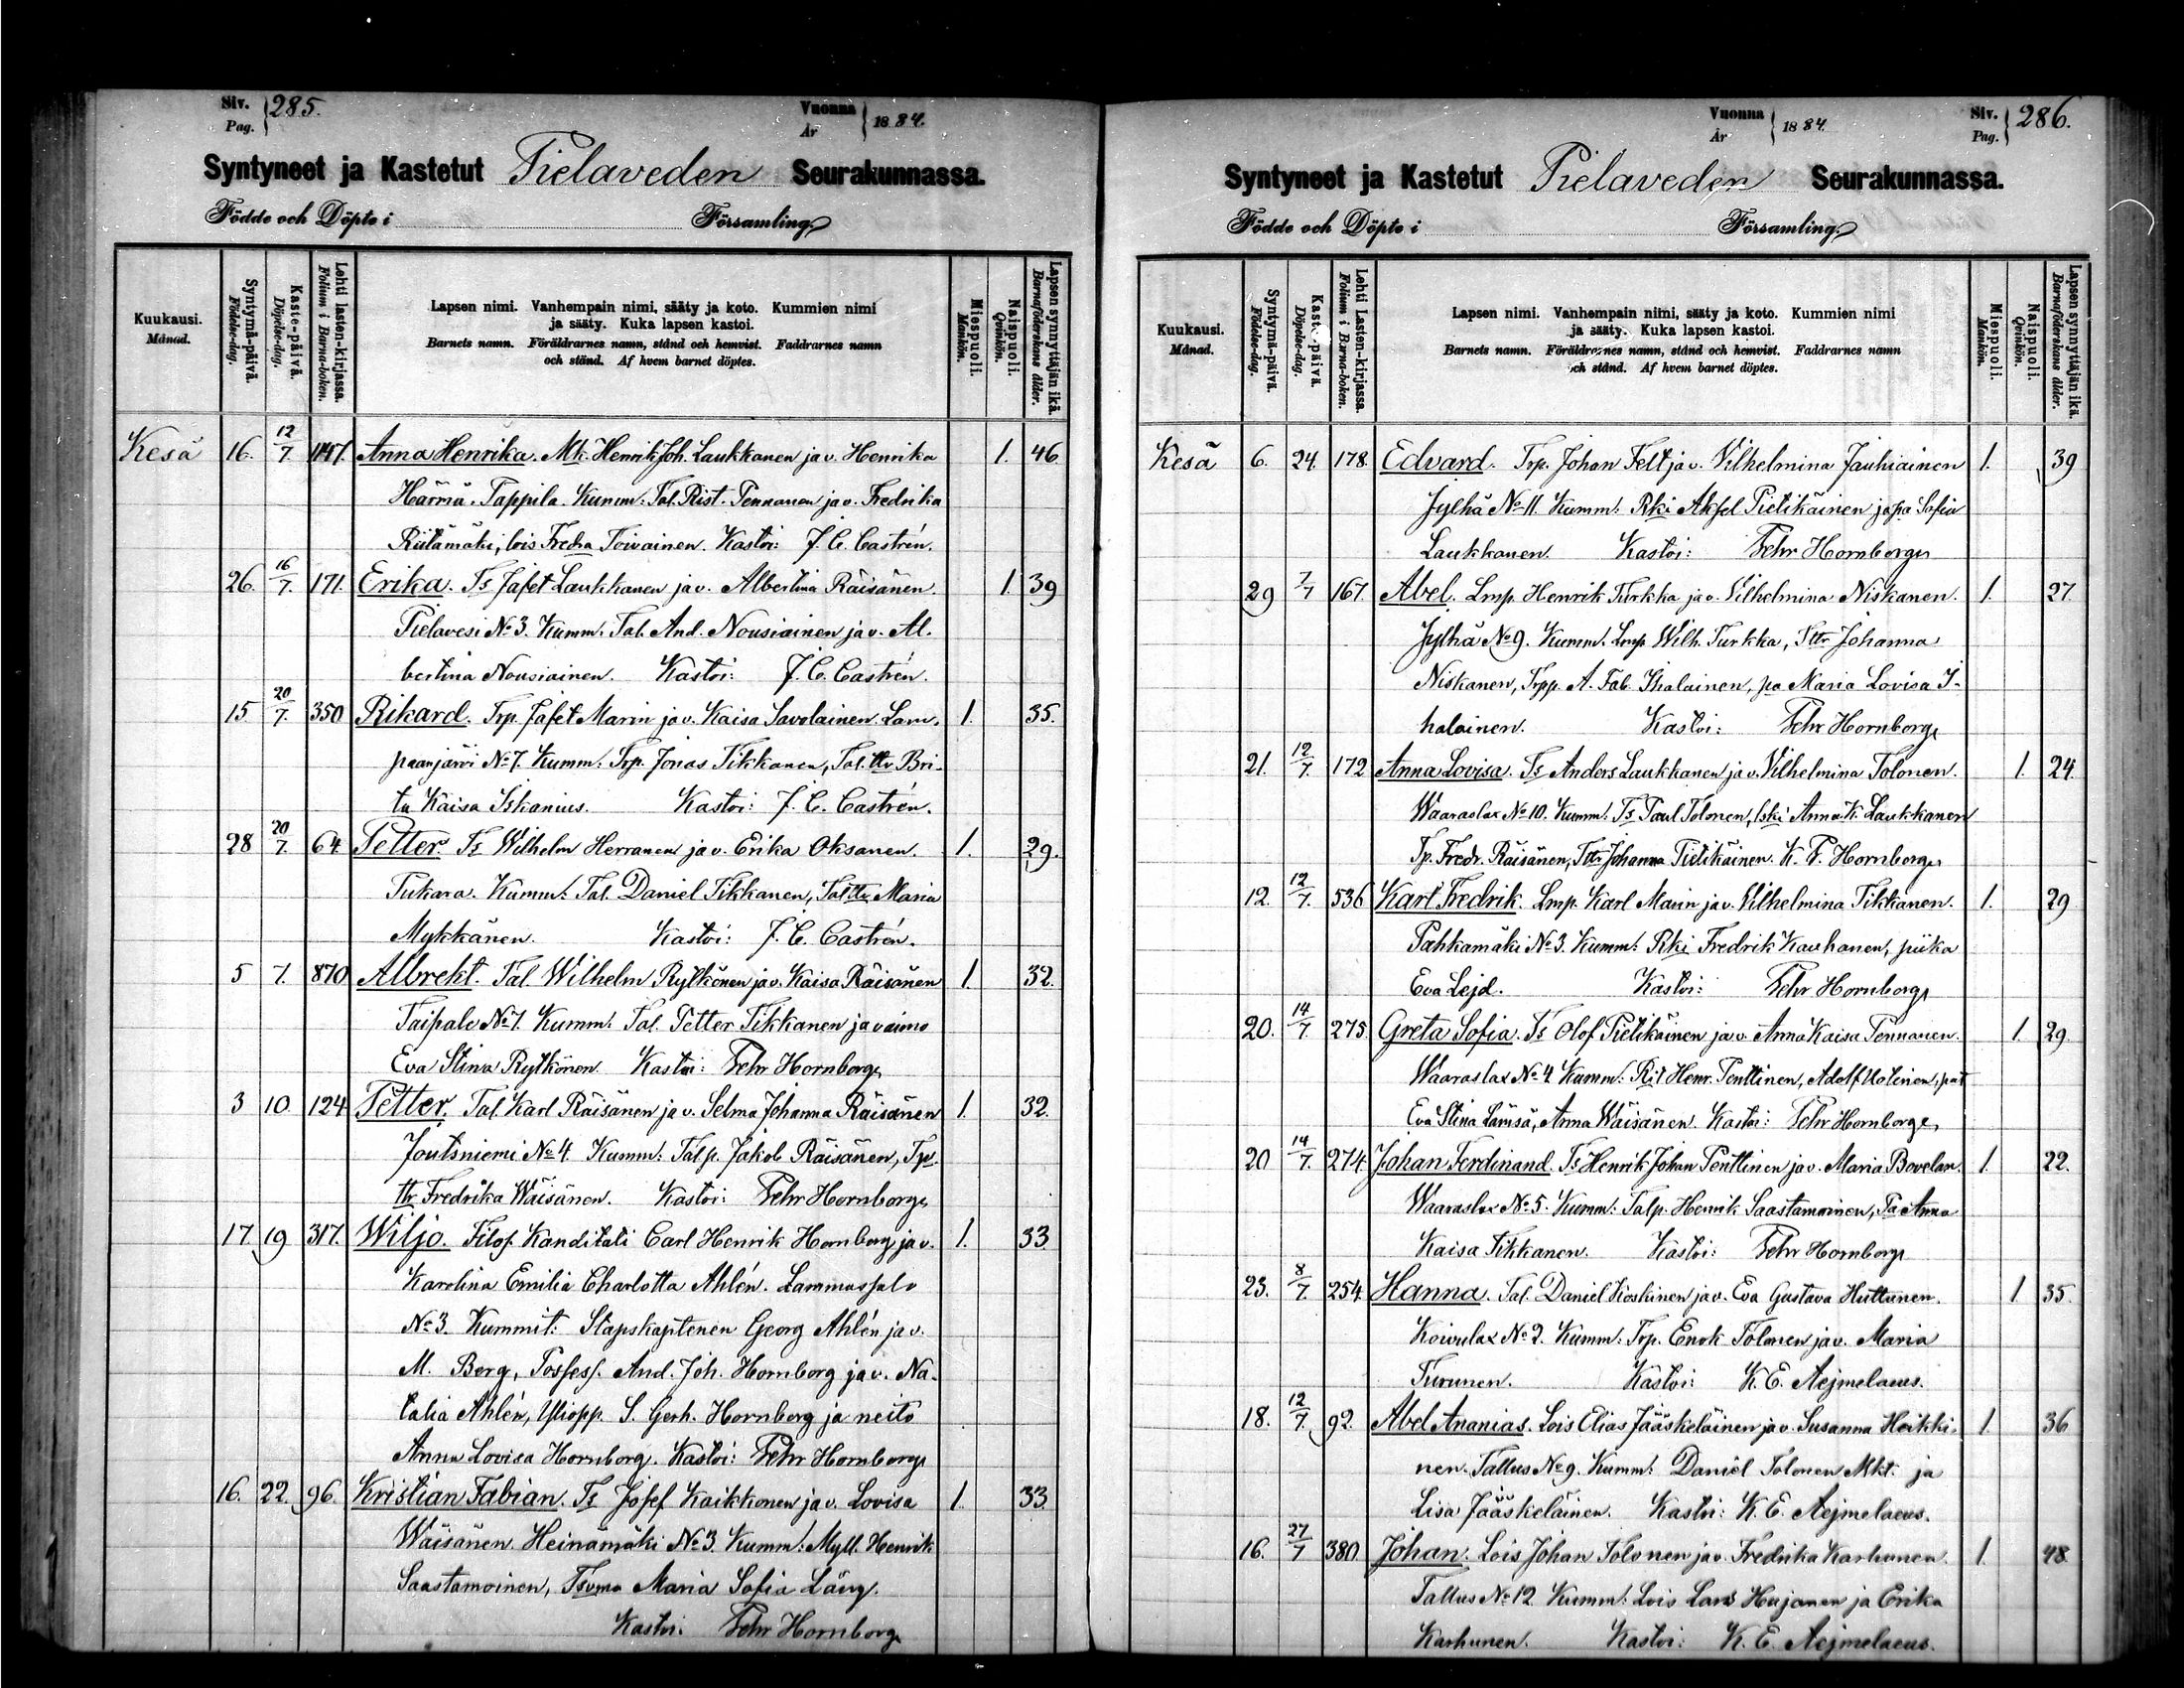 Siv. Pag. 285.
Vuonna År 1884.
Syntyneet ja Kastetut Pielaveden Seurakunnassa.
Födde och Döpte i Församling
Kuukausi. Månad.
Syntymä-päivä. Födelse-dag.
Kaste-päivä. Döpelse-dag.
Lehti lasten-kirjassa. Folium i Barna-boken.
Lapsen nimi. Vanhempain nimi, sääty ja koto. Kummien nimi
ja sääty. Kuka lapsen kastoi.
Barnets namn. Föräldrarnes namn, stånd och hemvist. Faddrarnes namn
och stånd. Af hvem barnet döptes.
Miespuoli. Mankön.
Naispuoli. Qvinkön.
Lapsen synnyttäjän ikä. Barnaföderskans ålder.
Kesä 16. 12/7 1147. Anna Henrika. Mk. Henrik Joh. Laukkanen ja v. Henrika 1. 46.
Härmä. Tappila. Kumm: Tal. Rist. Pennanen ja v. Fredrika
Riitamäki, lois Fredra Toivainen. Kastoi: J. C. Castrén.
26. 16/7. 171. Erika. Ts Jafet Laukkanen ja v. Albertina Räisänen. 1. 39
Pielavesi No 3. Kumm: Tal. And. Nousiainen ja v. Al-
bertina Nousiainen. Kastoi: J. C. Castrén.
15 20/7. 350 Rikard. Trp. Jafet Marin ja v. Kaisa Savolainen. Lam- 1. 35.
paanjärvi No 7. Kumm: Trp. Jonas Tikkanen, Tal. ttr Bri-
ta Kaisa Iskanius. Kastoi: J. C. Castrén.
28 20/7. 64. Petter. Ts Wilhelm Herranen ja v. Erika Oksanen. 1. 29.
Tukara. Kumm: Tal. Daniel Tikkanen, Tal ttr Maria
Mykkänen. Kastoi: J. C. Castrén.
5 7. 870 Albrekt. Tal. Wilhelm Rytkönen ja v. Kaisa Räisänen 1. 32.
Taipale No 7. Kumm: Tal. Petter Tikkanen ja vaimo
Eva Stina Rytkönen Kastoi: Fehr Hornborg
3 10 124 Petter. Tal. Karl Räisänen ja v. Selma Johanna Räisänen 1. 32.
Joutsniemi No 4. Kumm: Talp. Jakob Räisänen, Tp.
ttr Fredrika Wäisänen. Kastoi: Fehr Hornborg
17 19 317. Wiljo. Filos. Kanditati Carl Henrik Hornborg ja v. 1. 33
Karolina Emilia Charlotta Ahlén. Lammassalo
No 3. Kummit: Stapskaptenen Georg Ahlén ja v.
M. Berg, Possess. And. Joh. Hornborg ja v. Na-
talia Ahlén, Yliopp. S. Gerh. Hornborg ja neito
Anna Lovisa Hornborg. Kastoi: Fehr Hornborg
16. 22. 96. Kristian Fabian. Ts Josef Kaikkonen ja v. Lovisa 1. 33
Wäisänen Heinämäki No 3. Kumm: Myll. Henrik
Saastamoinen, Maria Sofia Läng.
Kastoi. Fehr Hornborg
Vuonna År 1884.
Siv. Pag. 286.
Syntyneet ja Kastetut Pielaveden Seurakunnassa.
Födde och Döpte i Församling
Kuukausi. Månad.
Syntymä-päivä. Födelse-dag.
Kaste-päivä. Döpelse-dag.
Lehti Lasten-kirjassa. Folium i Barna-boken.
Lapsen nimi. Vanhempain nimi, sääty ja koto. Kummien nimi
ja sääty. Kuka lapsen kastoi.
Barnets namn. Föräldrarnes namn, stånd och hemvist. Faddrarnes namn
och stånd. Af hvem barnet döptes.
Miespuoli. Mankön.
Naispuoli. Qvinkön.
Lapsen synnyttäjän ikä. Barnaföderskans ålder.
Kesä 6. 24. 178. Edvard. Trp. Johan Felt ja v. Vilhelmina Jauhiainen 1. 39
Jylhä No 11. Kumm: Rki Aksel Pietikäinen ja pa Sofia
Laukkanen. Kastoi: Fehr Hornborg
29 7/7 167. Abel. Lmp. Henrik Turkka ja v. Vilhelmina Niskanen. 1. 27.
Jylhä No 9. Kumm: Lmp Wilh. Turkka, Ttr Johanna
Niskanen, Trpp. A. Fab. Ihalainen, pa Maria Lovisa I-
halainen. Kastoi: Fehr Hornborg
21. 12/7. 172 Anna Lovisa. Ts Anders Laukkanen ja v. Vilhelmina Tolonen. 1. 24.
Waaraslax No 10. Kumm: Ts Paul Tolonen, Iski Anna K. Laukkanen
Tp. Fredr. Räisänen, Ttr Johanna Pietikäinen. K. F. Hornborg
12. 12/7. 536 Karl Fredrik. Lmp. Karl Marin ja v. Vilhelmina Tikkanen. 1. 29
Pahkamäki No 3. Kumm: Rki Fredrik Kauhanen, piika
Eva Lejd. Kastoi: Fehr Hornborg
20. 14/7. 275. Greta Sofia. Ts Olof Pietikäinen ja v. Anna Kaisa Pennanen. 1. 29
Waaraslax No 4 Kumm: Rit Henr. Penttinen, Adolf Uotinen, pat
Eva Stina Lämsä, Anna Wäisänen. Kastoi: Fehr Hornborg
20 14/7. 274. Johan Ferdinand. Ts Henrik Johan Penttinen ja v. Maria Bovelan. 1. 22.
Waaraslax No 5. Kumm: Talp. Henrik Saastamoinen, Pa Anna
Kaisa Tikkanen. Kastoi: Fehr Hornborg
23. 8/7. 254. Hanna. Tal. Daniel Koskinen ja v. Eva Gustava Huttunen. 1 35.
Koivulax No 2. Kumm: Trp. Enok Tolonen ja v. Maria
Turunen. Kastoi: K. E. Aejmelaeus.
18. 12/7. 92. Abel Ananias. Lois Elias Jääskeläinen ja v. Susanna Heikki- 1. 36
nen. Tallus No 9. Kumm: Daniel Tolonen Mkt. ja
Lisa Jääskeläinen. Kastoi: K. E. Aejmelaeus.
16. 27/7 380. Johan. Lois Johan Tolonen ja v. Fredrika Karhunen 1. 48
Tallus No 12. Kumm: Lois Lars Hujanen ja Erika
Karhunen. Kastoi: K. E. Aejmelaeus.